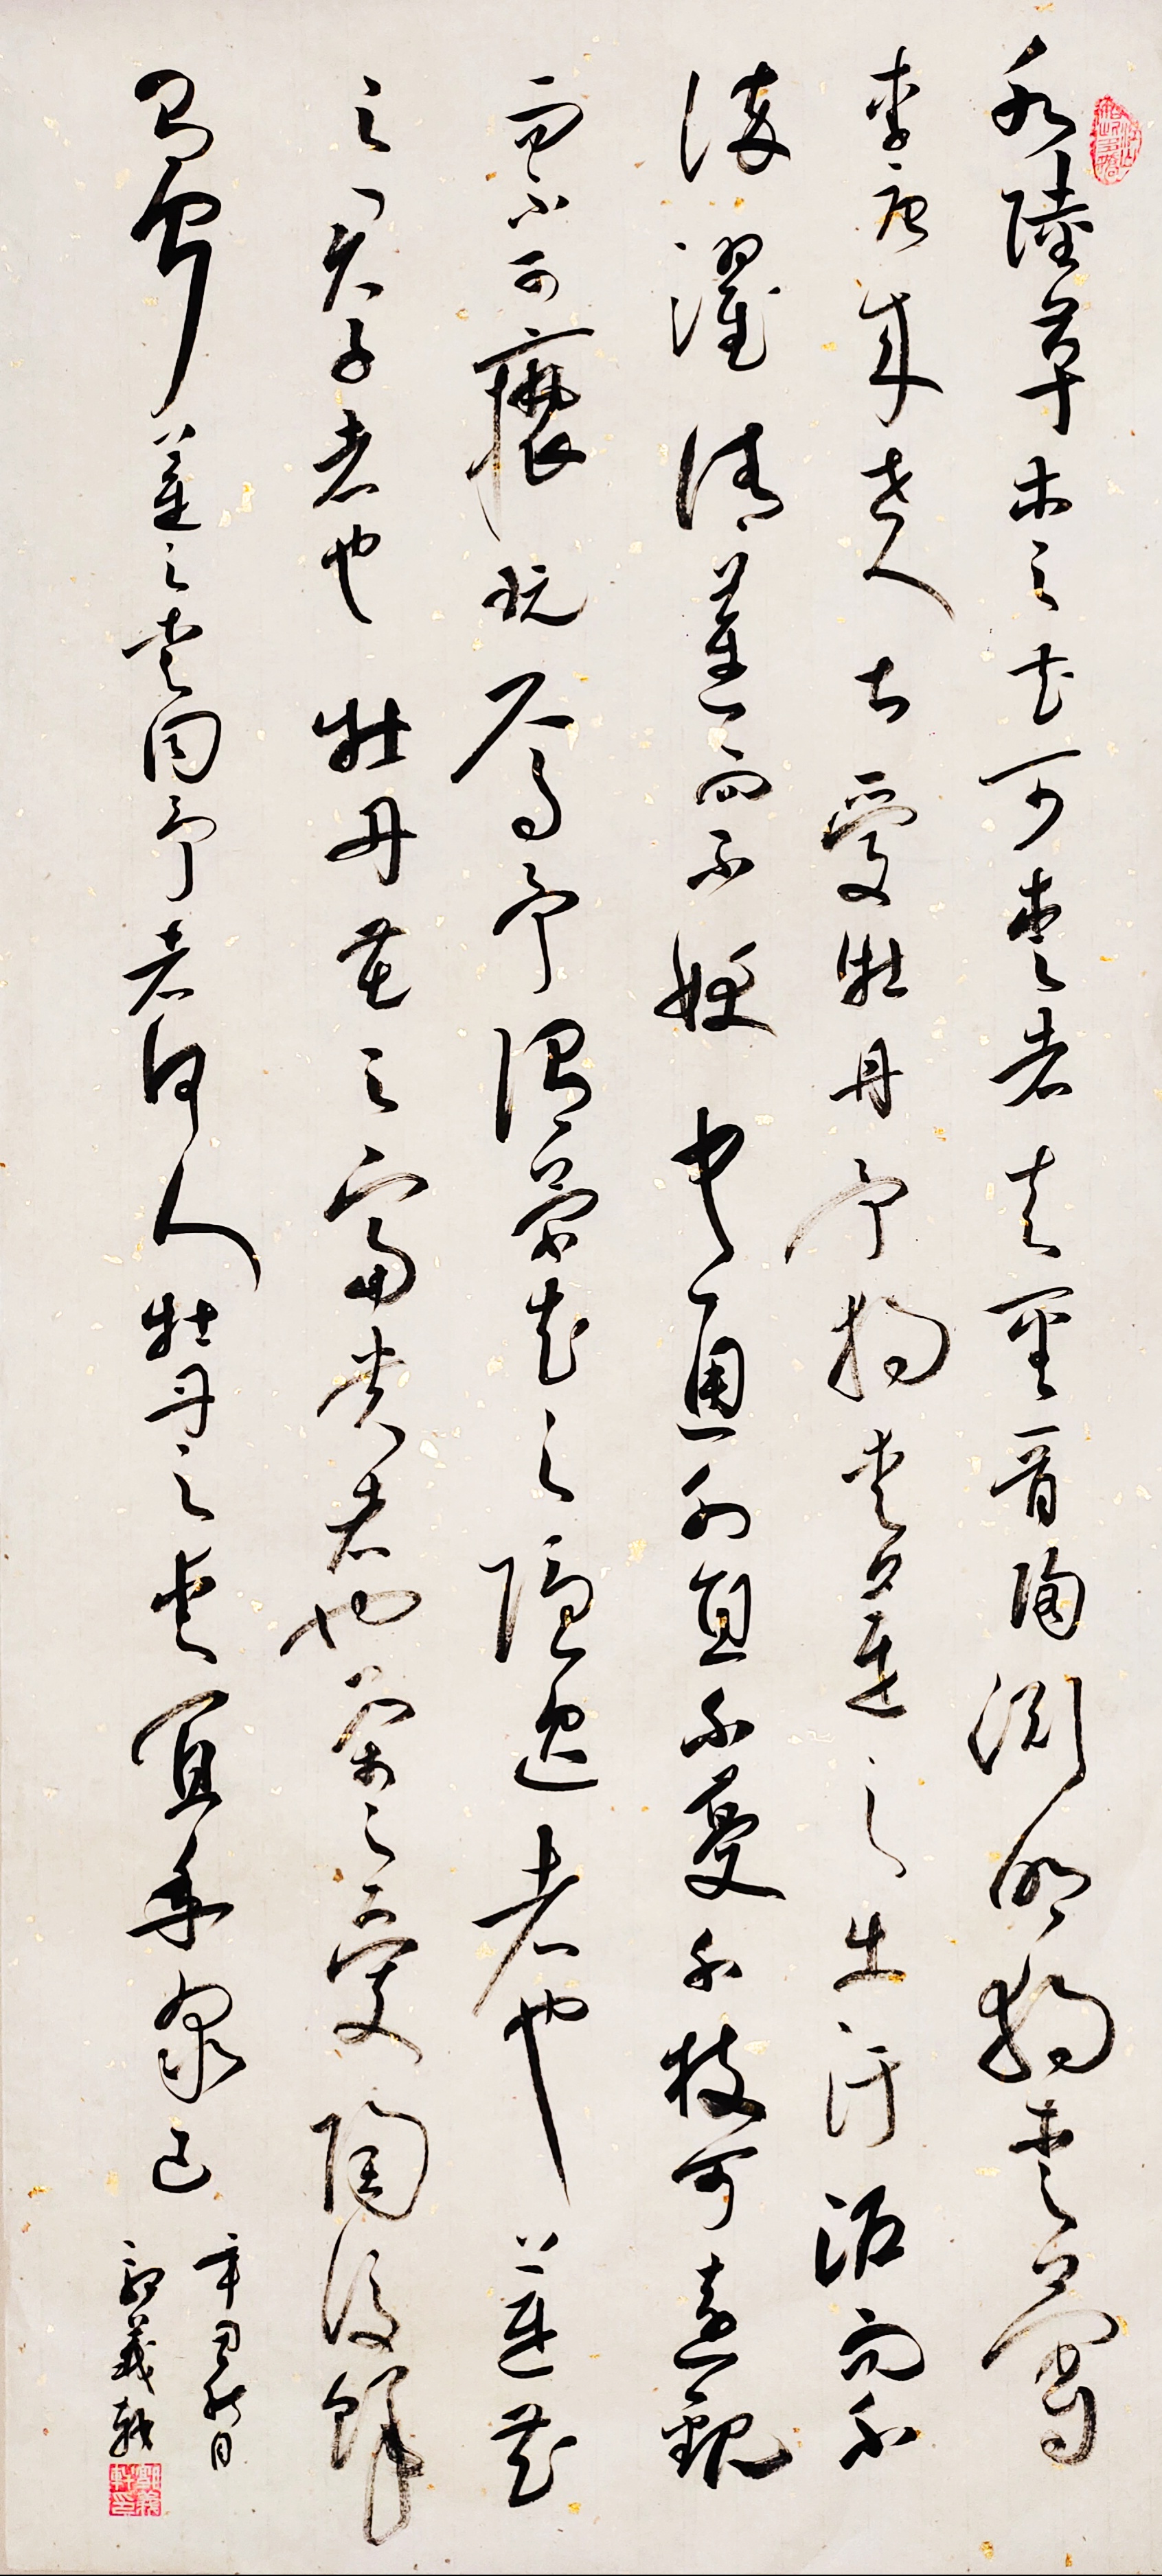 水陸草木之花可愛者甚蕃晉陶淵明獨愛菊
李唐來世人甚愛牡丹予獨愛蓮之出汙泥而不
染濯清蓮而不妖中通外直不蔓不枝可遠觀
而不可褻玩焉予謂菊花之隱逸者也蓮花
之君子者也牡丹花之富貴者也菊之愛陶後鮮
有聞蓮之愛同予者何人牡丹之愛宜乎眾已
辛丑秋月
鄒義軒
鄒義軒印